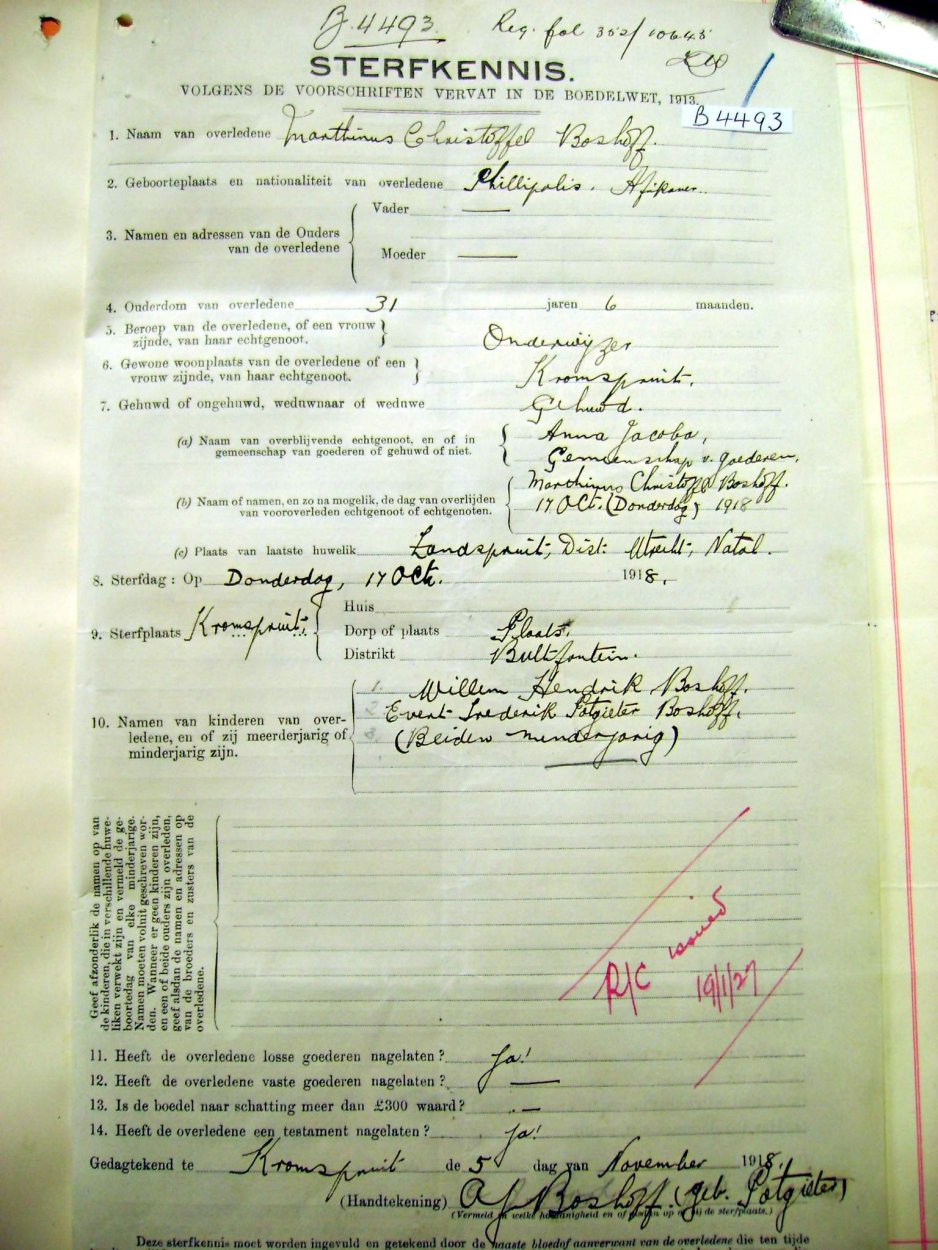 B.4493. Reg. fol 352/10645
STERFKENNIS.
VOLGENS DE VOORSCHRIFTEN VERVAT IN DE BOEDELWET, 1913.
B4493
1. Naam van overledene Marthinus Christoffel Boshoff.
2. Geboorteplaats en nationaliteit van overledene Phillipolis. Afrikaner.
3. Namen en adressen van de Ouders van de overledene
Vader —
Moeder —
4. Onderdom van overledene 31 jaren 6 maanden.
5. Beroep van de overledene, of een vrouw
zijnde, van haar echtgenoot. Onderwijzer
6. Gewone woonplaats van de overledene of een
vrouw zijnde, van haar echtgenoot. Kromspruit.
7. Gehuwd of ongehuwd, weduwnaar of weduwe Gehuwd.
(a) Naam van overblijvende echtgenoot, en of in
gemeenschap van goederen of gehuwd of niet.
Anna Jacoba,
Gemeenschap v. goederen.
(b) Naam of namen, en zo na mogelik, de dag van overlijden
van vooroverleden echtgenoot of echtgenoten.
Marthinus Christoffel Boshoff.
17 Oct. (Donderdag) 1918
(c) Plaats van laatste huwelik Zandspruit, Dist: Utrecht, Natal.
8. Sterfdag: Op Donderdag, 17 Oct. 1918.
9. Sterfplaats Kromspruit.
Huis
Dorp of plaats Plaats.
Distrikt Bultfontein.
10. Namen van kinderen van over-
ledene, en of zij meerderjarig of
minderjarig zijn.
1. Willem Hendrik Boshoff.
2. Evert Frederik Potgieter Boshoff.
3. (Beiden minderjarig)
Geef afzonderlik de namen op van
de kinderen, die in verschillende huwe-
liken verwekt zijn en vermeld de ge-
boortedag van elke minderjarige.
Namen moeten voluit geschreven wor-
den. Wanneer er geen kinderen zijn,
en een of beide ouders zijn overleden,
geef alsdan de namen en adressen op
van de broeders en zusters van de
overledene.
R/C issued
19/1/27
11. Heeft de overledene losse goederen nagelaten? Ja!
12. Heeft de overledene vaste goederen nagelaten? —
13. Is de boedel naar schatting meer dan £300 waard? —
14. Heeft de overledene een testament nagelaten? Ja!
Gedagtekend te Kromspruit de 5 dag van November 1918.
(Handtekening) AJ Boshoff. (geb. Potgieter)
(Vermeld in welke hoedanigheid en of al de sterfplaats.)
Deze sterfkennis moet worden ingevuld en getekend door de naaste bloedof aanverwant van de overledene die ten tijde